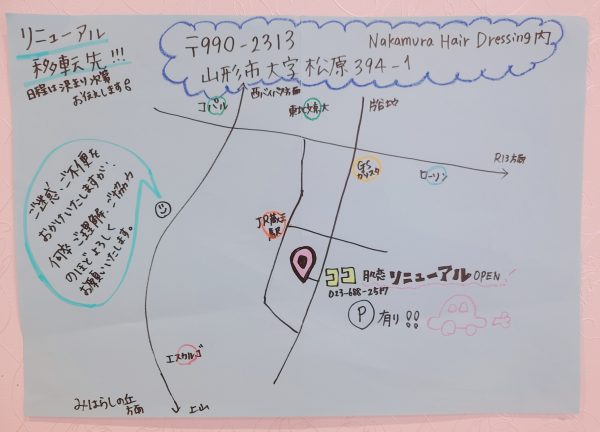 リニューアル
移転先!!!
日程は決まり次第
お伝えします。
〒990-2313
Nakamura Hair Dressing内
山形市大字松原394-1
コパル
西バイパス方面
R13方面
GS
ローソン
ご迷惑・ご不便を
おかけいたしますが、
何卒ご理解、ご協力
のほどよろしく
お願いいたします。
JR蔵王
駅
ココ
リニューアル OPEN
023-688-2517
P 有り!!
エスカルゴ
みはらしの丘
方面
上山